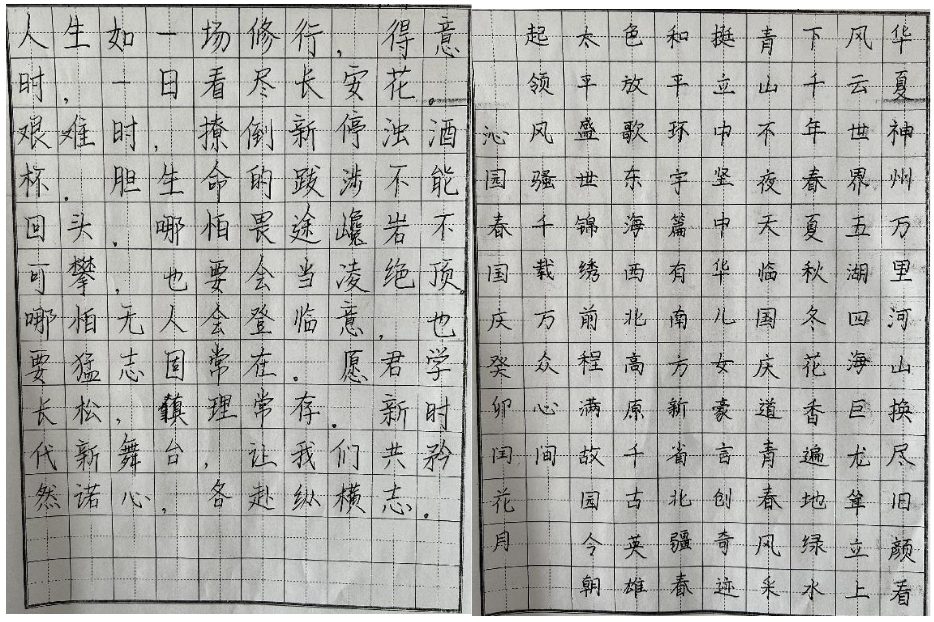 人生如一场修行，得意
时，一日看尽长安花。
艰难时，撩倒新停浊酒
杯。胆生命的跋涉不能
回头，哪怕畏途巉岩不
可攀，也要会当凌绝顶。
哪怕无人会登临意，也
要猛志固常在。愿君学
长松，慎理常存。新时
代新舞台，让我们共矜
然诺心，各赴纵横志。
华夏神州万里河山换尽旧颜看
风云世界五湖四海巨龙耸立上
下千年春夏秋冬花香遍地绿水
青山不夜天临国庆道青春风采
挺立中坚中华儿女豪言创奇迹
和平环宇篇有南方新省北疆春
色放歌东海西北高原千古英雄
太平盛世锦绣前程满故园今朝
起领风骚千载万众心间
沁园春国庆癸卯闰花月